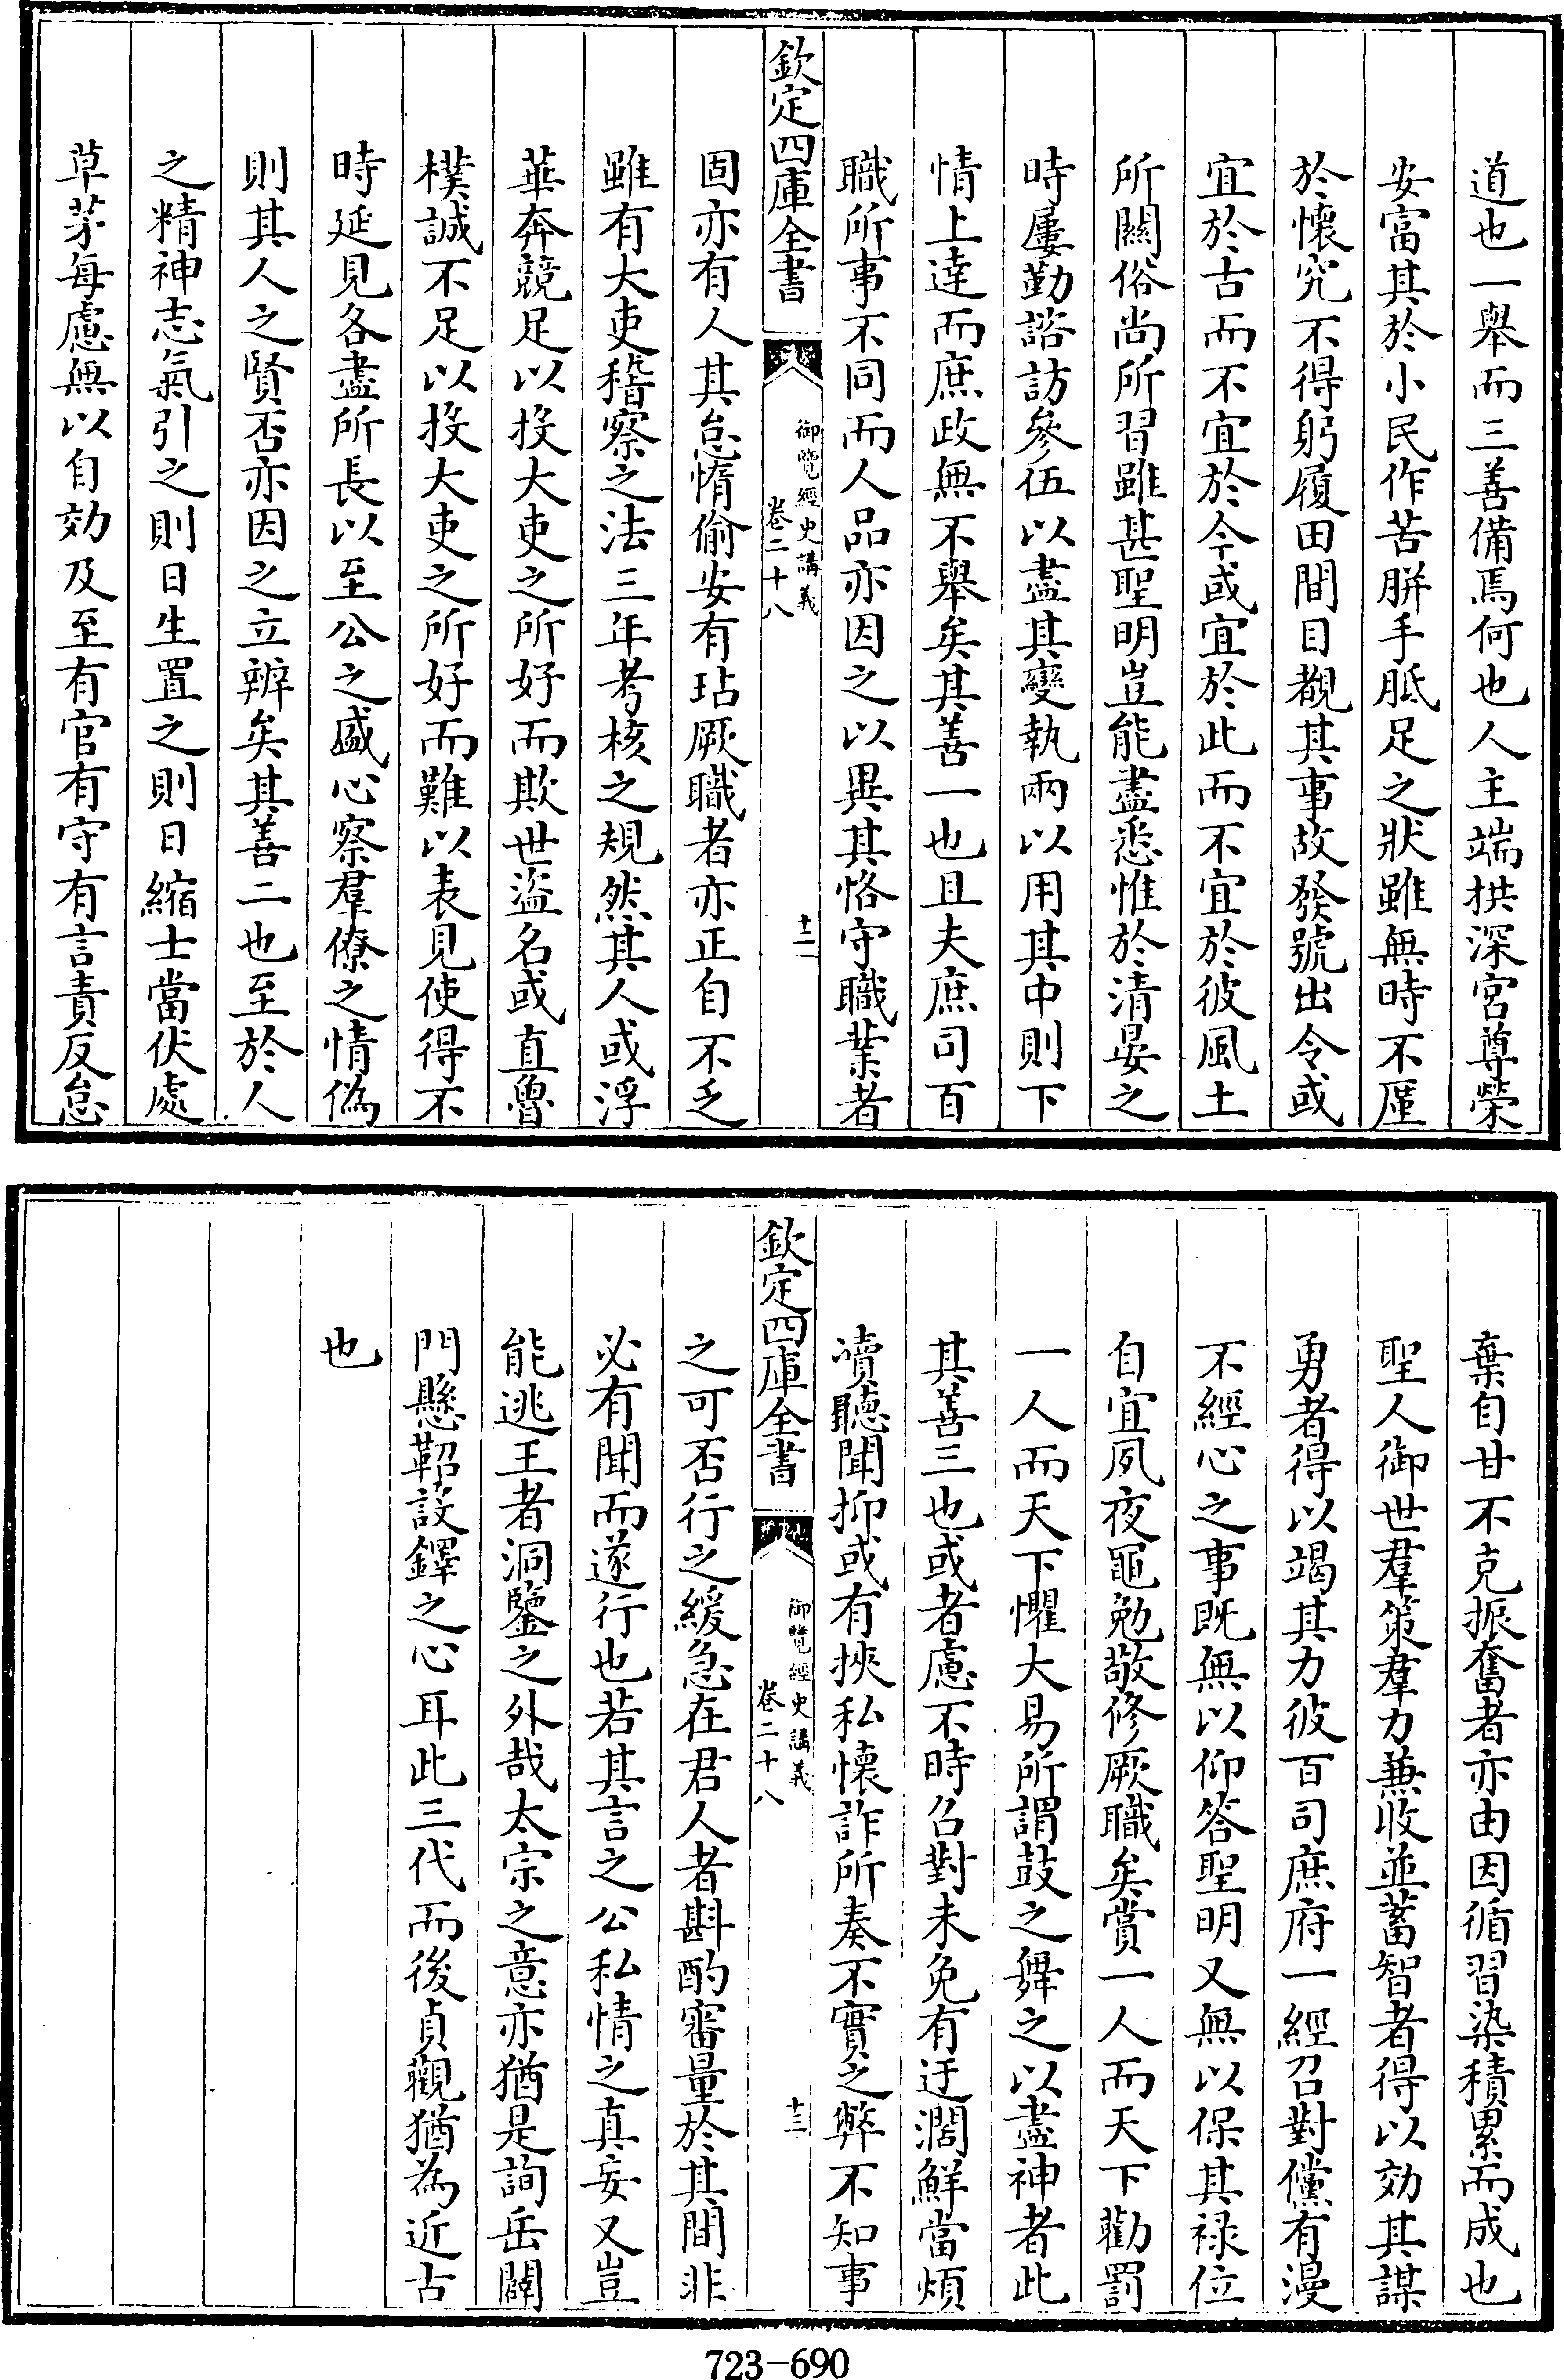 道也一舉而三善備焉何也人主端拱深宮尊榮
安富其於小民作苦胼手胝足之狀雖無時不厪
於懷究不得躬履田間目覩其事故發號出令或
宜於古而不宜於今或宜於此而不宜於彼風土
所關俗尚所習雖甚聖明豈能盡悉惟於清晏之
時屢勤諮訪參伍以盡其變執兩以用其中則下
情上達而庶政無不舉矣其善一也且夫庶司百
職所事不同而人品亦因之以異其恪守職業者
欽定四庫全書
御覽經史講義
卷二十八
十二
固亦有人其怠惰偷安有玷厥職者亦正自不乏
雖有大吏稽察之法三年考核之規然其人或浮
華奔競足以投大吏之所好而欺世盜名或直魯
樸誠不足以投大吏之所好而難以表見使得不
時延見各盡所長以至公之盛心察羣僚之情偽
則其人之賢否亦因之立辨矣其善二也至於人
之精神志氣引之則日生置之則日縮士當伏處
草茅每慮無以自効及至有官有守有言責反怠
棄自甘不克振奮者亦由因循習染積累而成也
聖人御世羣策羣力兼收並蓄智者得以効其謀
勇者得以竭其力彼百司庶府一經召對儻有漫
不經心之事既無以仰答聖明又無以保其祿位
自宜夙夜黽勉敬修厥職矣賞一人而天下勸罰
一人而天下懼大易所謂鼓之舞之以盡神者此
其善三也或者慮不時召對未免有迂濶鮮當煩
瀆聽聞抑或有挾私懷詐所奏不實之弊不知事
欽定四庫全書
御覽經史講義
卷二十八
十三
之可否行之緩急在君人者斟酌審量於其間非
必有聞而遂行也若其言之公私情之真妄又豈
能逃王者洞鑒之外哉太宗之意亦猶是詢岳闢
門懸鞀設鐸之心耳此三代而後貞觀猶為近古
也
723-690